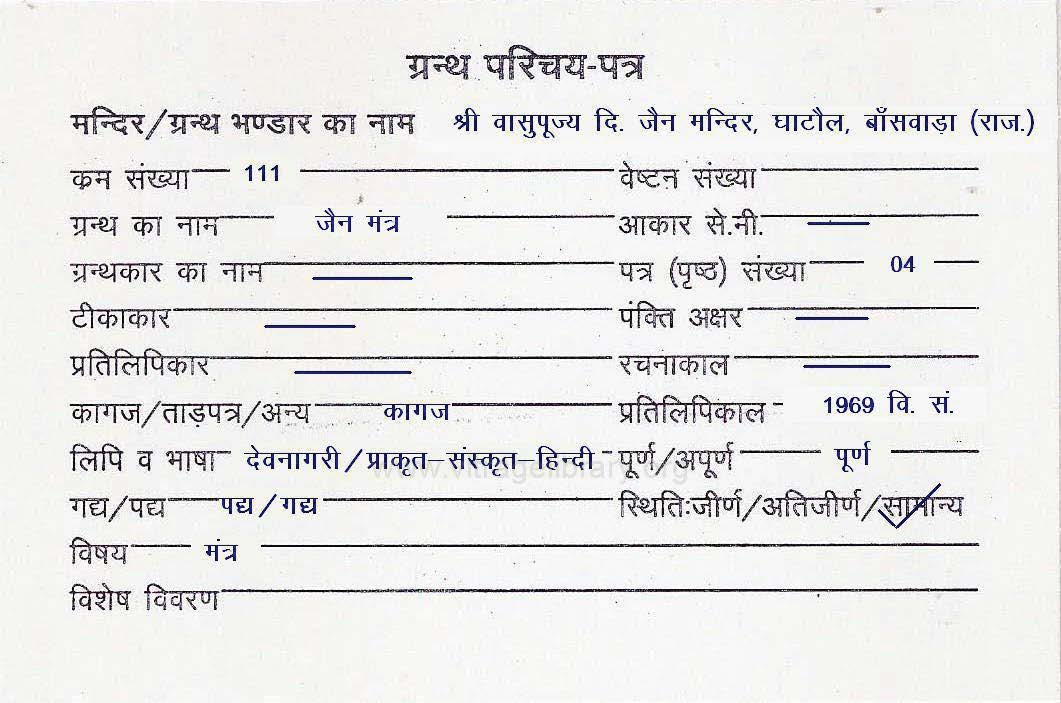 ग्रन्थ परिचय-पत्र
मन्दिर/ग्रन्थ भण्डार का नाम श्री वासुपूज्य दि. जैन मन्दिर, घाटौल, बाँसवाड़ा (राज.)
कम संख्या 111 वेष्टन संख्या
ग्रन्थ का नाम जैन मंत्र आकार से.मी.
ग्रन्थकार का नाम पत्र (पृष्ठ) संख्या 04
टीकाकार पंक्ति अक्षर
प्रतिलिपिकार रचनाकाल
कागज/ताड़पत्र/अन्य कागज प्रतिलिपिकाल 1969 वि. सं.
लिपि व भाषा देवनागरी/प्राकृत-संस्कृत-हिन्दी पूर्ण/अपूर्ण पूर्ण
www.vitragelibrary.org
गद्य/पद्य पद्य/गद्य स्थितिःजीर्ण/अतिजीर्ण/सामान्य
विषय मंत्र
विशेष विवरण